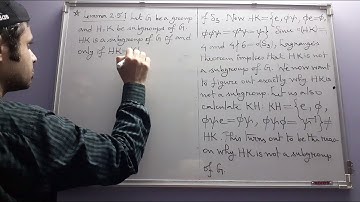 * Lemma 2.5.1 Let G be a group
and H, K be subgroups of G.
HK is a subgroup of G if and
only if HK =
of S3. Now HK = {e, φψ, φe=φ,
} Since o(HK) =
4 and 4 ∤ 6 = o(S3), Lagranges
Theorem implies that HK is not
a subgroup of G. We now want
to figure out exactly why HK is
not a subgroup. Let us also
calculate KH. KH = {e, φ,
HK. This turns out to be the reason
on why HK is not a subgroup
of G.